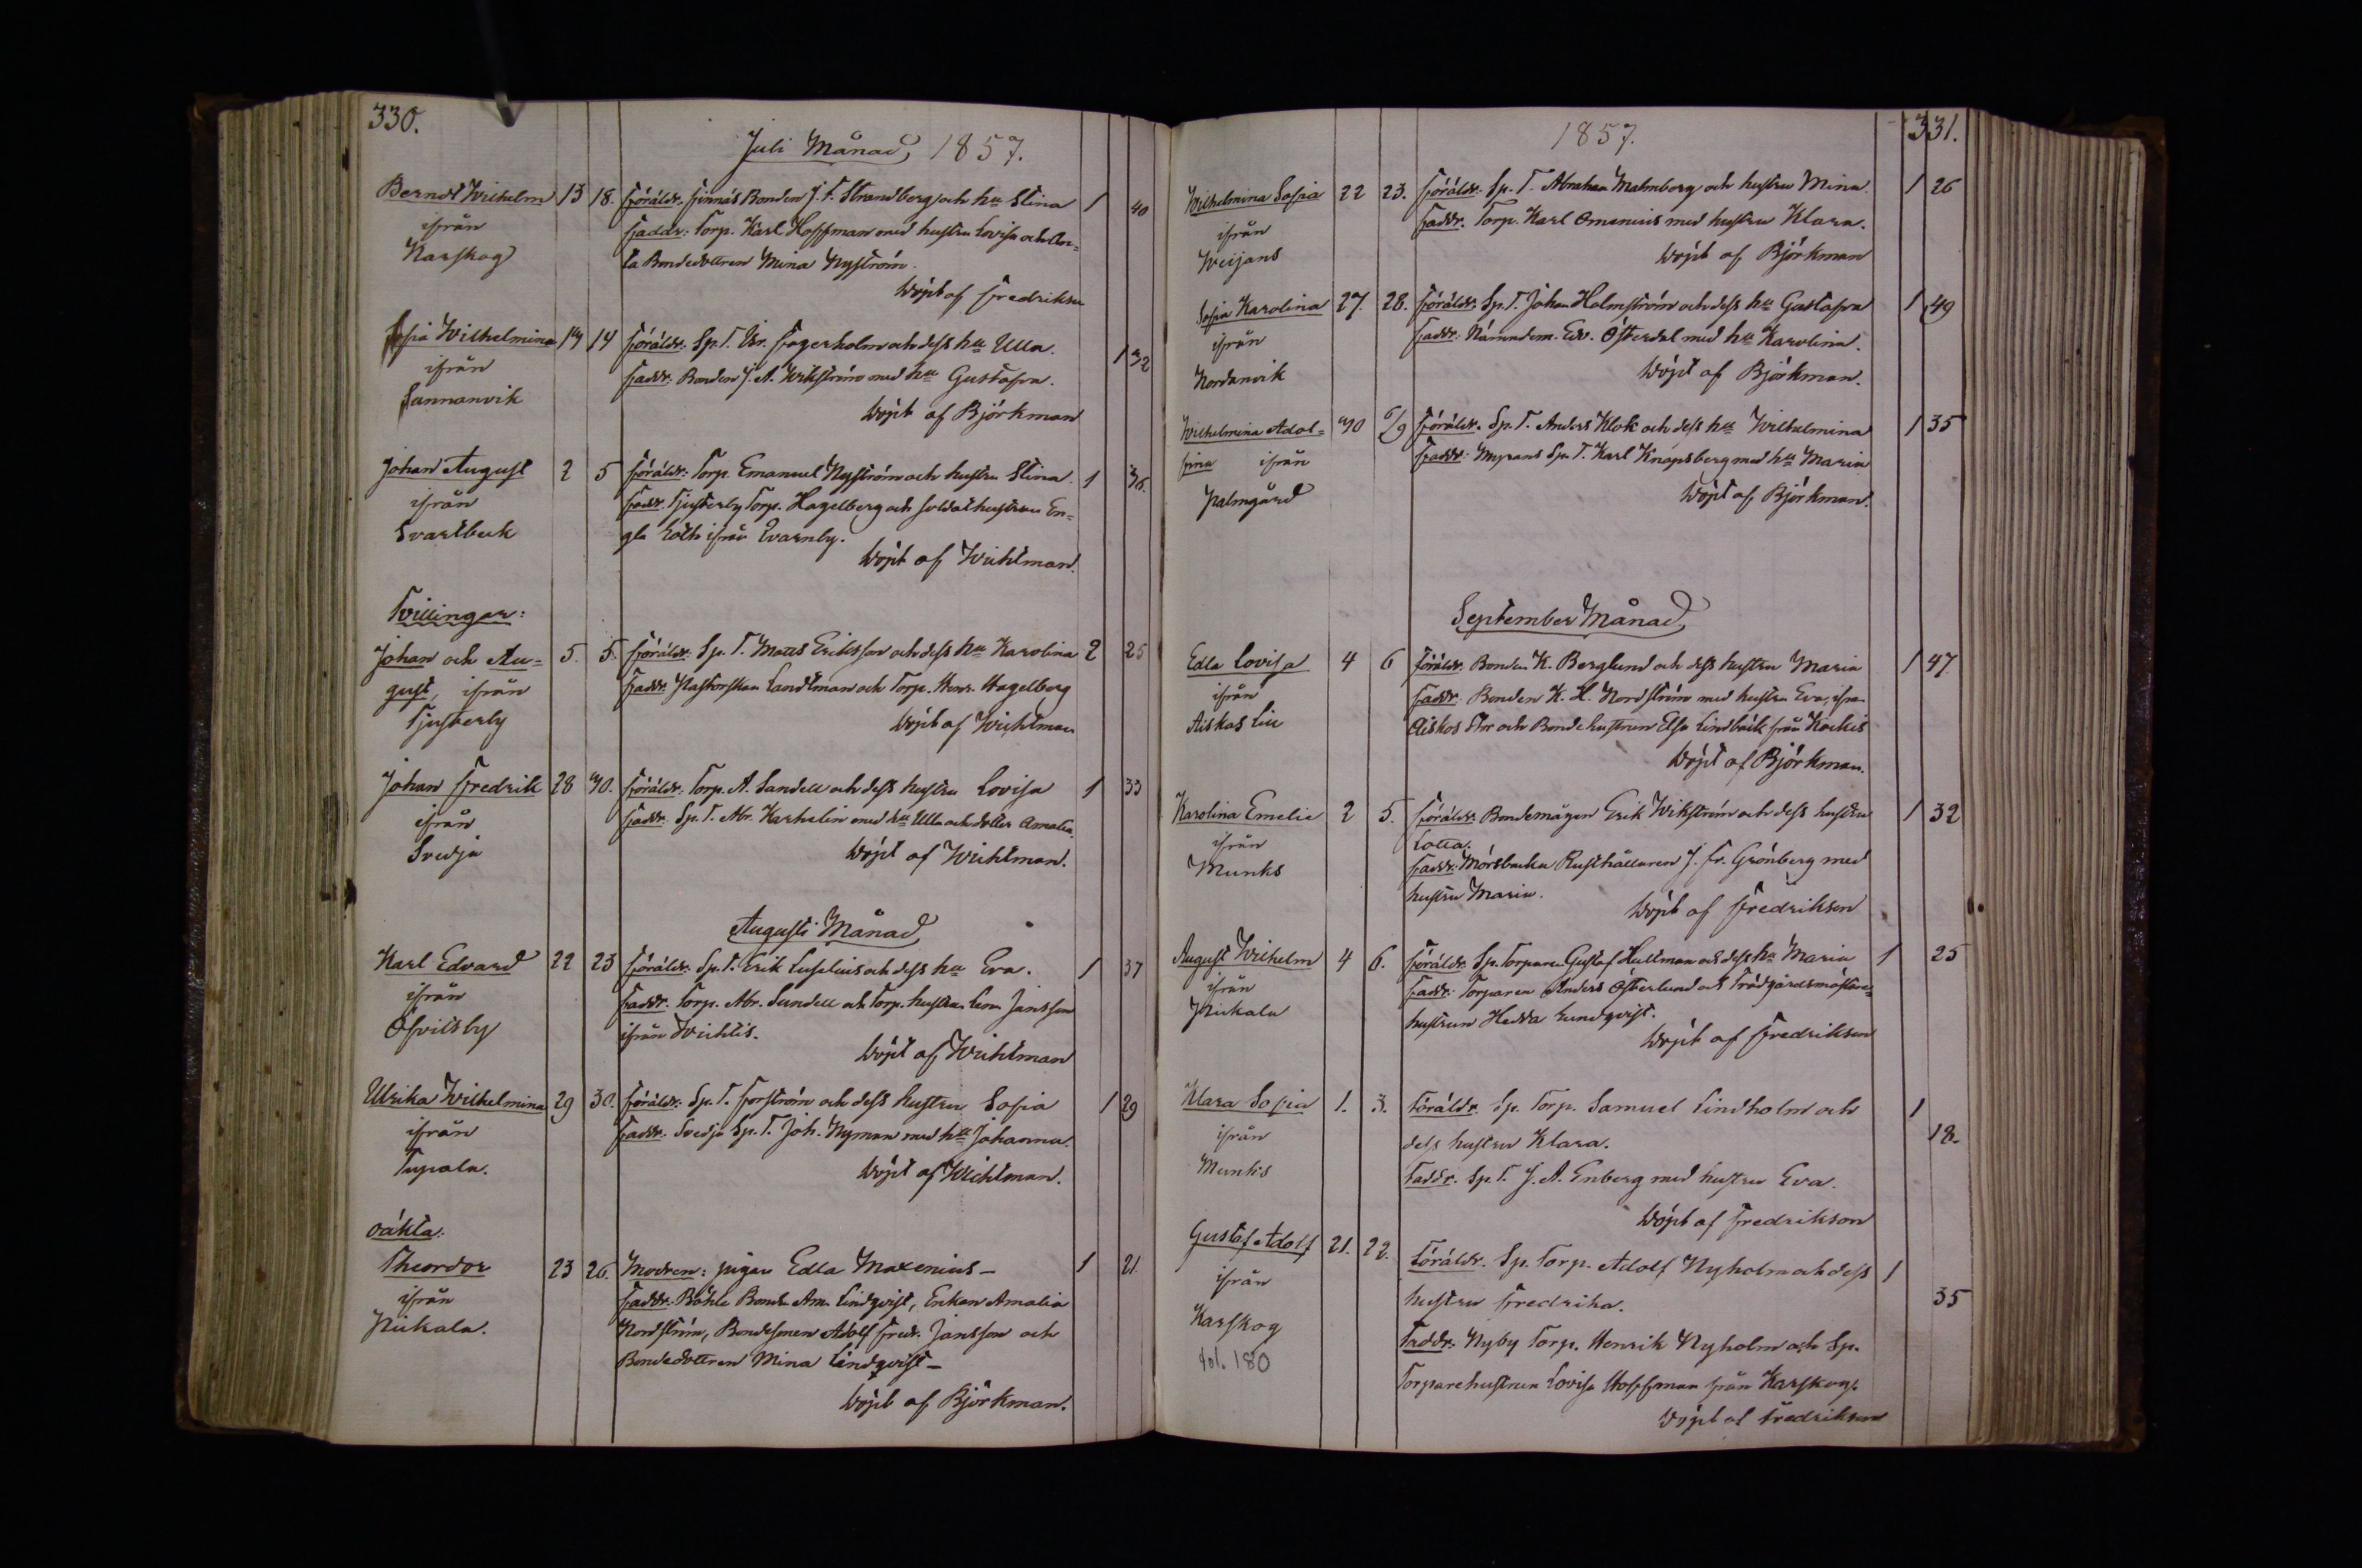 330.
Juli Månad, 1857.
Berndt Wilhelm 13 18. Föräldr. Finnäs Bonden J. F. Strandberg och hu Stina 1 40
ifrån Faddr: Torp. Karl Hoffman med hustru Lovisa och
Karskog ta Bondedottren Mina Nyström.
Döpt af Fredrikson
Sofia Wilhelmina 14 Föräldr. Sp. T. Fagerholm och dess hu Ulla. 1 32
ifrån Faddr. Bonden J. A. Wikström med hu Gustafva.
Sannanvik Döpt af Björkman
Johan August 2 5 Föräldr: Torp. Emanuel Nyström och hustru Stina. 1 36.
ifrån Faddr. Tjusterby Torp. Hagelberg och soldathustrun En=
Svartbeck gla ifrån Qvarnby.
Döpt af Wichtman.
Tvillingar:
Johan och Au= 5. 5. Föräldr: Sp. T. Matts Eriksson och dess hu Karolina 2 25
gust, ifrån Faddr. Pastorskan Landtman och Torp. Henr. Hagelberg
Tjusterby Döpt af Wichtman
Johan Fredrik 28 Föräldr: Torp. A. Sandell och dess hustru Lovisa 1 33
ifrån Faddr. Sp. T. Abr. Karhelin med hu Ulla och dotter Amalia.
Svedja Döpt af Wichtman.
Augusti Månad
Karl Edvard 22 23 Föräldr. Sp. T. Erik och dess hu Eva. 1 37
ifrån Faddr. Torp. Abr. Sundell och Torp. hustrun Lena Jansson
Öfvitsby ifrån Wichtis.
Döpt af Wichtman
Ulrika Wilhelmina 29 30. Föräldr: Sp. T. Forström och dess hustru Sofia 1 29
ifrån Faddr. Svedja Sp. T. Joh. Nyman med hu Johanna.
Tupala. Döpt af Wichtman.
Oäkta:
Theordor 23 26. Modren: pigan Edla Maxenius— 1 21.
ifrån Faddr: Böhle Bonden Lindqvist, Enkan Amalia
Pickala. Nordström, Bondesonen Adolf Fredr. Jansson och
Bondedottren Mina Lindqvist—
Döpt af Björkman.
1857. 331.
Wilhelmina Sofia 22 23. Föräldr. Sp. T. Abraham Malmborg och hustru Mina 1 26
ifrån Faddr. Torp. Karl Omenius med hustru Klara.
Weijans Döpt af Björkman
Sofia Karolina 27. 28. Föräldr: Sp. T. Johan Holmström och dess hu Gustafva 1 49
ifrån Faddr: Nämndem. Edv. Österdal med hu Karolina.
Nordanvik Döpt af Björkman.
Wilhelmina Adol= 6/9 Föräldr. Sp. T. Anders Klok och dess hu Wilhelmina 1 35
fina ifrån Faddr: Myrans Sp. T. Karl Knapsberg med hu Maria
Palmgård Döpt af Björkman.
September Månad
Edla Lovisa 4 6 Föräldr. Bonden K. Berglund och dess hustru Maria 1 47
ifrån Faddr. Bonden K. H. Nordström med hustru Eva, ifrån
Aiskos Lill Aiskos Stor och Bondehustrun Elsa Lindbäck från Kockis
Döpt af Björkman.
Karolina Emelie 2 5. Föräldr: Bondemågen Erik Wikström och dess hustru 1 32
ifrån Lotta.
Munks Faddr: Mörsbacka Rusthållaren J. Fr. Grönberg med
hustru Maria.
Döpt af Fredrikson
August Wilhelm 4 6. Föräldr: Sp. Torparen Gustaf Hultman och dess hu Maria 1 25
ifrån Faddr: Torparen Anders Österlund och Trädgårdsmästare=
Pickala hustrun Hedda Lundqvist.
Döpt af Fredrikson
Klara Sofia 1. 3. Föräldr. Sp. Torp. Samuel Lindholm och 1 18.
ifrån dess hustru Klara.
Munks Faddr. Sp. T. J. A. Enberg med hustru Eva.
Döpt af Fredrikson
Gustaf Adolf 21. 22. Föräldr. Sp. Torp. Adolf Nyholm och dess 1 35
ifrån hustru Fredrika.
Karskog Faddr. Nyby Torp. Henrik Nyholm och Sp.
fol. 180 Torparehustrun Lovisa Hoffman från Karskog.
Döpt af Fredrikson